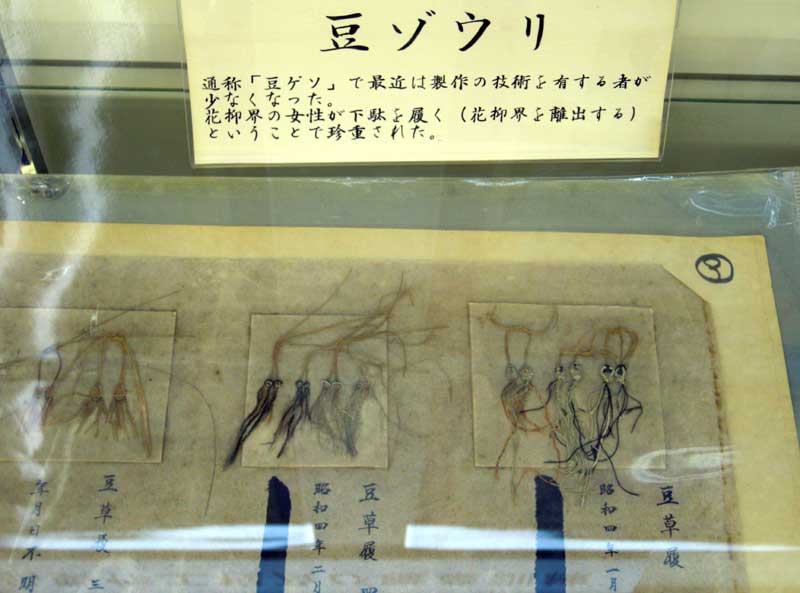 豆ゾウリ
通称「豆ゲソ」で最近は製作の技術を有する者が
少なくなった。
花柳界の女性が下駄を履く（花柳界を離出する）
ということで珍重された。
豆草履
昭和四年一月
豆草履 四
昭和四年二月
豆草履 三
年月日不明